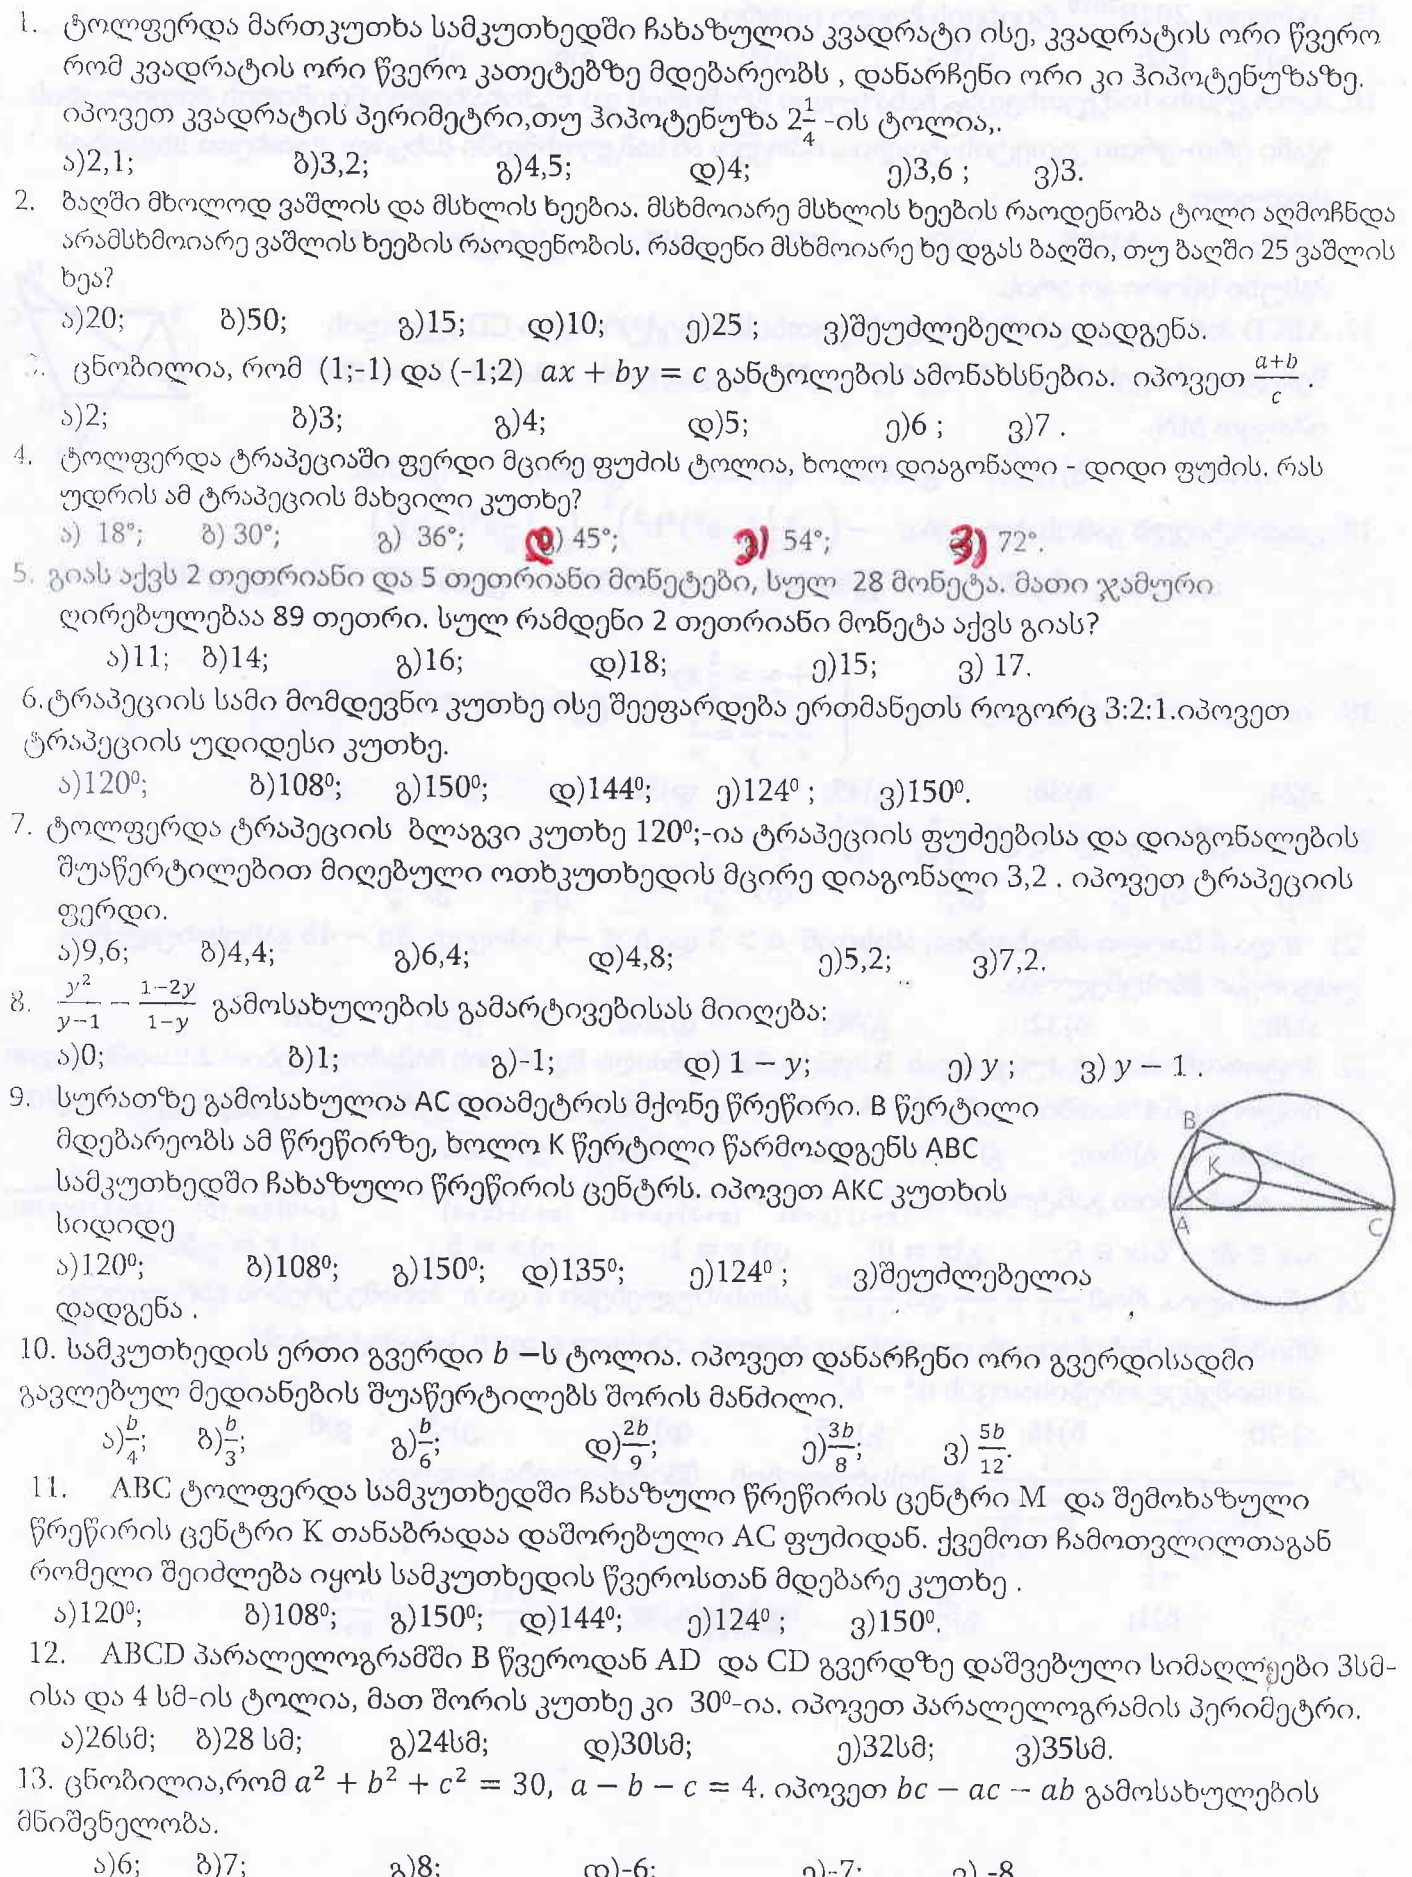 1. ტოლფერდა მართკუთხა სამკუთხედში ჩახაზულია კვადრატი ისე, კვადრატის ორი წვერო
რომ კვადრატის ორი წვერო კათეტებზე მდებარეობს , დანარჩენი ორი კი ჰიპოტენუზაზე.
იპოვეთ კვადრატის პერიმეტრი,თუ ჰიპოტენუზა 2 1/4 -ის ტოლია,.
ა)2,1; ბ)3,2; გ)4,5; დ)4; ე)3,6 ; ვ)3.
2. ბაღში მხოლოდ ვაშლის და მსხლის ხეებია. მსხმოიარე მსხლის ხეების რაოდენობა ტოლი აღმოჩნდა
არამსხმოიარე ვაშლის ხეების რაოდენობის. რამდენი მსხმოიარე ხე დგას ბაღში, თუ ბაღში 25 ვაშლის
ხეა?
ა)20; ბ)50; გ)15; დ)10; ე)25 ; ვ)შეუძლებელია დადგენა.
3. ცნობილია, რომ (1;-1) და (-1;2) ax + by = c განტოლების ამონახსნებია. იპოვეთ (a+b)/c .
ა)2; ბ)3; გ)4; დ)5; ე)6 ; ვ)7 .
4. ტოლფერდა ტრაპეციაში ფერდი მცირე ფუძის ტოლია, ხოლო დიაგონალი - დიდი ფუძის. რას
უდრის ამ ტრაპეციის მახვილი კუთხე?
ა) 18°; ბ) 30°; გ) 36°; დ) 45°; ე) 54°; ვ) 72°.
5. გიას აქვს 2 თეთრიანი და 5 თეთრიანი მონეტები, სულ 28 მონეტა. მათი ჯამური
ღირებულებაა 89 თეთრი. სულ რამდენი 2 თეთრიანი მონეტა აქვს გიას?
ა)11; ბ)14; გ)16; დ)18; ე)15; ვ) 17.
6.ტრაპეციის სამი მომდევნო კუთხე ისე შეეფარდება ერთმანეთს როგორც 3:2:1.იპოვეთ
ტრაპეციის უდიდესი კუთხე.
ა)120⁰; ბ)108⁰; გ)150⁰; დ)144⁰; ე)124⁰ ; ვ)150⁰.
7. ტოლფერდა ტრაპეციის ბლაგვი კუთხე 120⁰;-ია ტრაპეციის ფუძეებისა და დიაგონალების
შუაწერტილებით მიღებული ოთხკუთხედის მცირე დიაგონალი 3,2 . იპოვეთ ტრაპეციის
ფერდი.
ა)9,6; ბ)4,4; გ)6,4; დ)4,8; ე)5,2; ვ)7,2.
8. y²/(y−1) − (1−2y)/(1−y) გამოსახულების გამარტივებისას მიიღება:
ა)0; ბ)1; გ)-1; დ) 1 − y; ე) y ; ვ) y − 1 .
9. სურათზე გამოსახულია AC დიამეტრის მქონე წრეწირი. B წერტილი
მდებარეობს ამ წრეწირზე, ხოლო K წერტილი წარმოადგენს ABC
სამკუთხედში ჩახაზული წრეწირის ცენტრს. იპოვეთ AKC კუთხის
სიდიდე
ა)120⁰; ბ)108⁰; გ)150⁰; დ)135⁰; ე)124⁰ ; ვ)შეუძლებელია
დადგენა .
B
K
A
C
10. სამკუთხედის ერთი გვერდი b −ს ტოლია. იპოვეთ დანარჩენი ორი გვერდისადმი
გავლებულ მედიანების შუაწერტილებს შორის მანძილი.
ა)b/4; ბ)b/3; გ)b/6; დ)2b/9; ე)3b/8; ვ) 5b/12.
11. ABC ტოლფერდა სამკუთხედში ჩახაზული წრეწირის ცენტრი M და შემოხაზული
წრეწირის ცენტრი K თანაბრადაა დაშორებული AC ფუძიდან. ქვემოთ ჩამოთვლილთაგან
რომელი შეიძლება იყოს სამკუთხედის წვეროსთან მდებარე კუთხე .
ა)120⁰; ბ)108⁰; გ)150⁰; დ)144⁰; ე)124⁰ ; ვ)150⁰.
12. ABCD პარალელოგრამში B წვეროდან AD და CD გვერდზე დაშვებული სიმაღლეები 3სმ-
ისა და 4 სმ-ის ტოლია, მათ შორის კუთხე კი 30⁰-ია. იპოვეთ პარალელოგრამის პერიმეტრი.
ა)26სმ; ბ)28 სმ; გ)24სმ; დ)30სმ; ე)32სმ; ვ)35სმ.
13. ცნობილია,რომ a² + b² + c² = 30, a − b − c = 4. იპოვეთ bc − ac − ab გამოსახულების
მნიშვნელობა.
ა)6; ბ)7; გ)8; დ)-6; ე)-7; ვ) -8